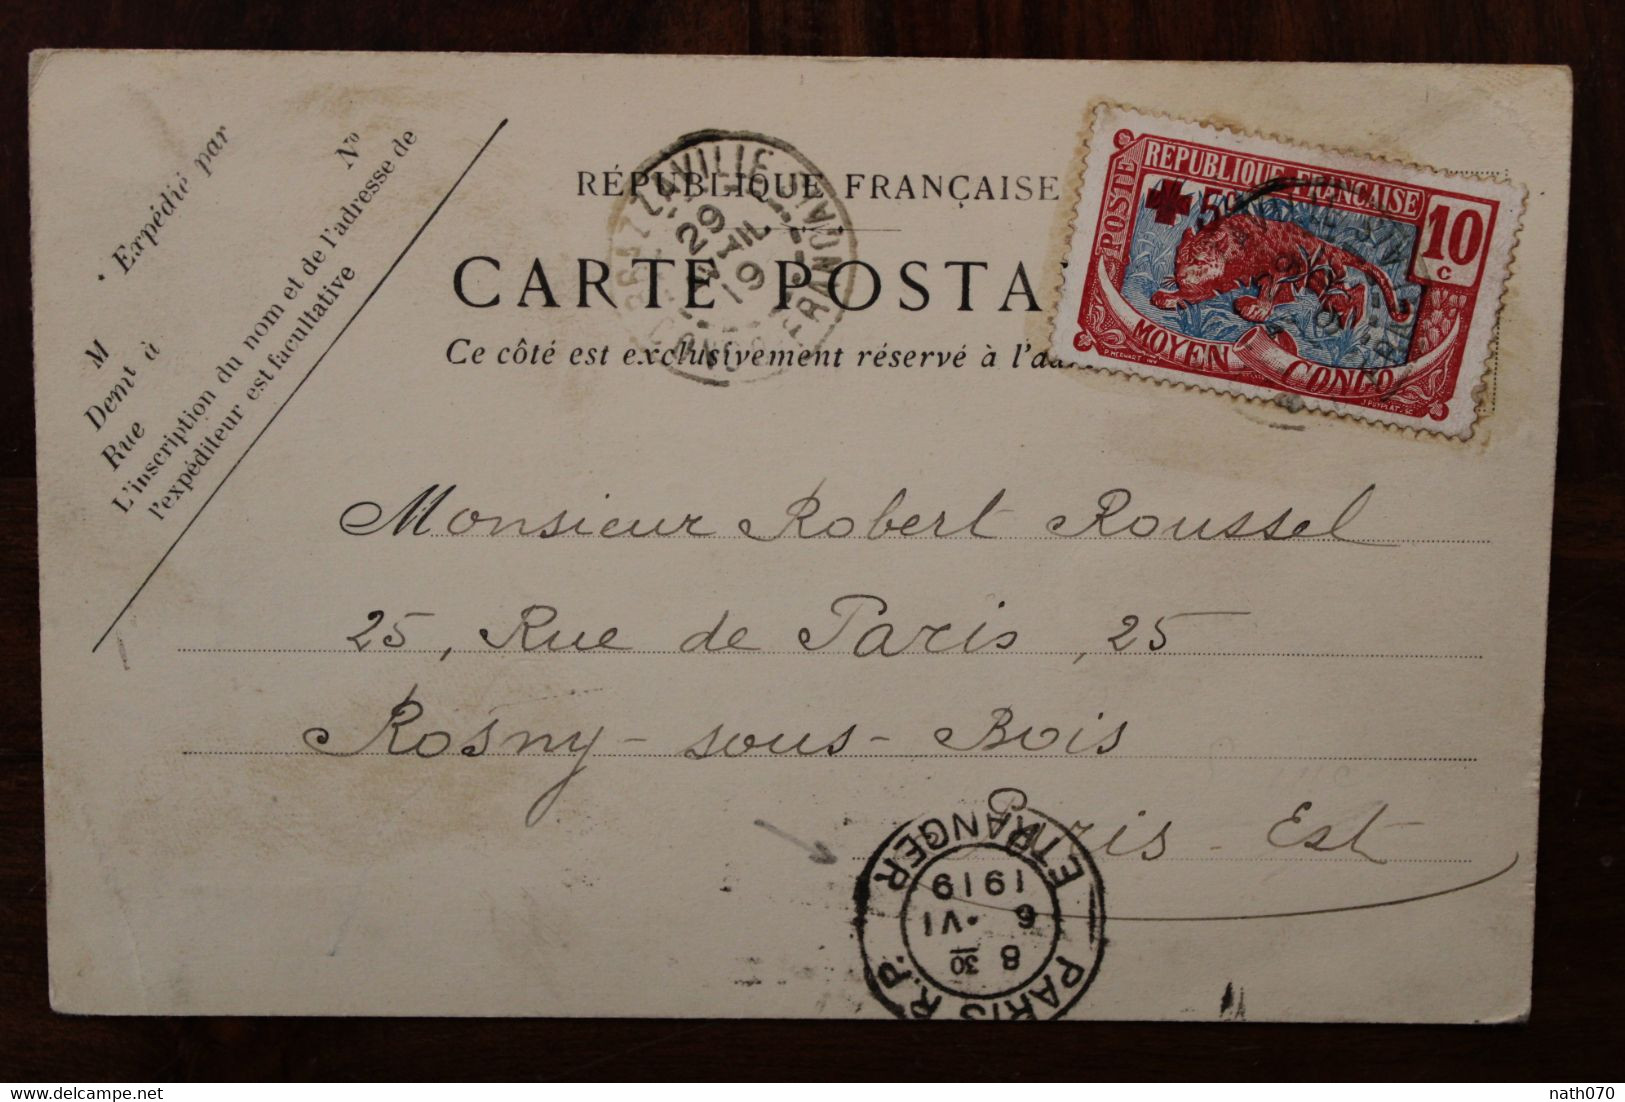 Expédié par
No
M
Demt à
Rue
L'inscription du nom et de l'adresse de
l'expéditeur est facultative
RÉPUBLIQUE FRANÇAISE
CARTE POSTA
Ce côté est exclusivement réservé à l'ad
BRAZZAVILLE
29
AVRIL
19
CONGO FRANÇAIS
REPUBLIQUE FRANÇAISE
POSTE
5c
10
c
MOYEN CONGO
Monsieur Robert Roussel
25, Rue de Paris, 25
Rosny-sous-Bois
Paris-Est
PARIS R.P.
ETRANGER
8 30
6 VI
1919
nath070